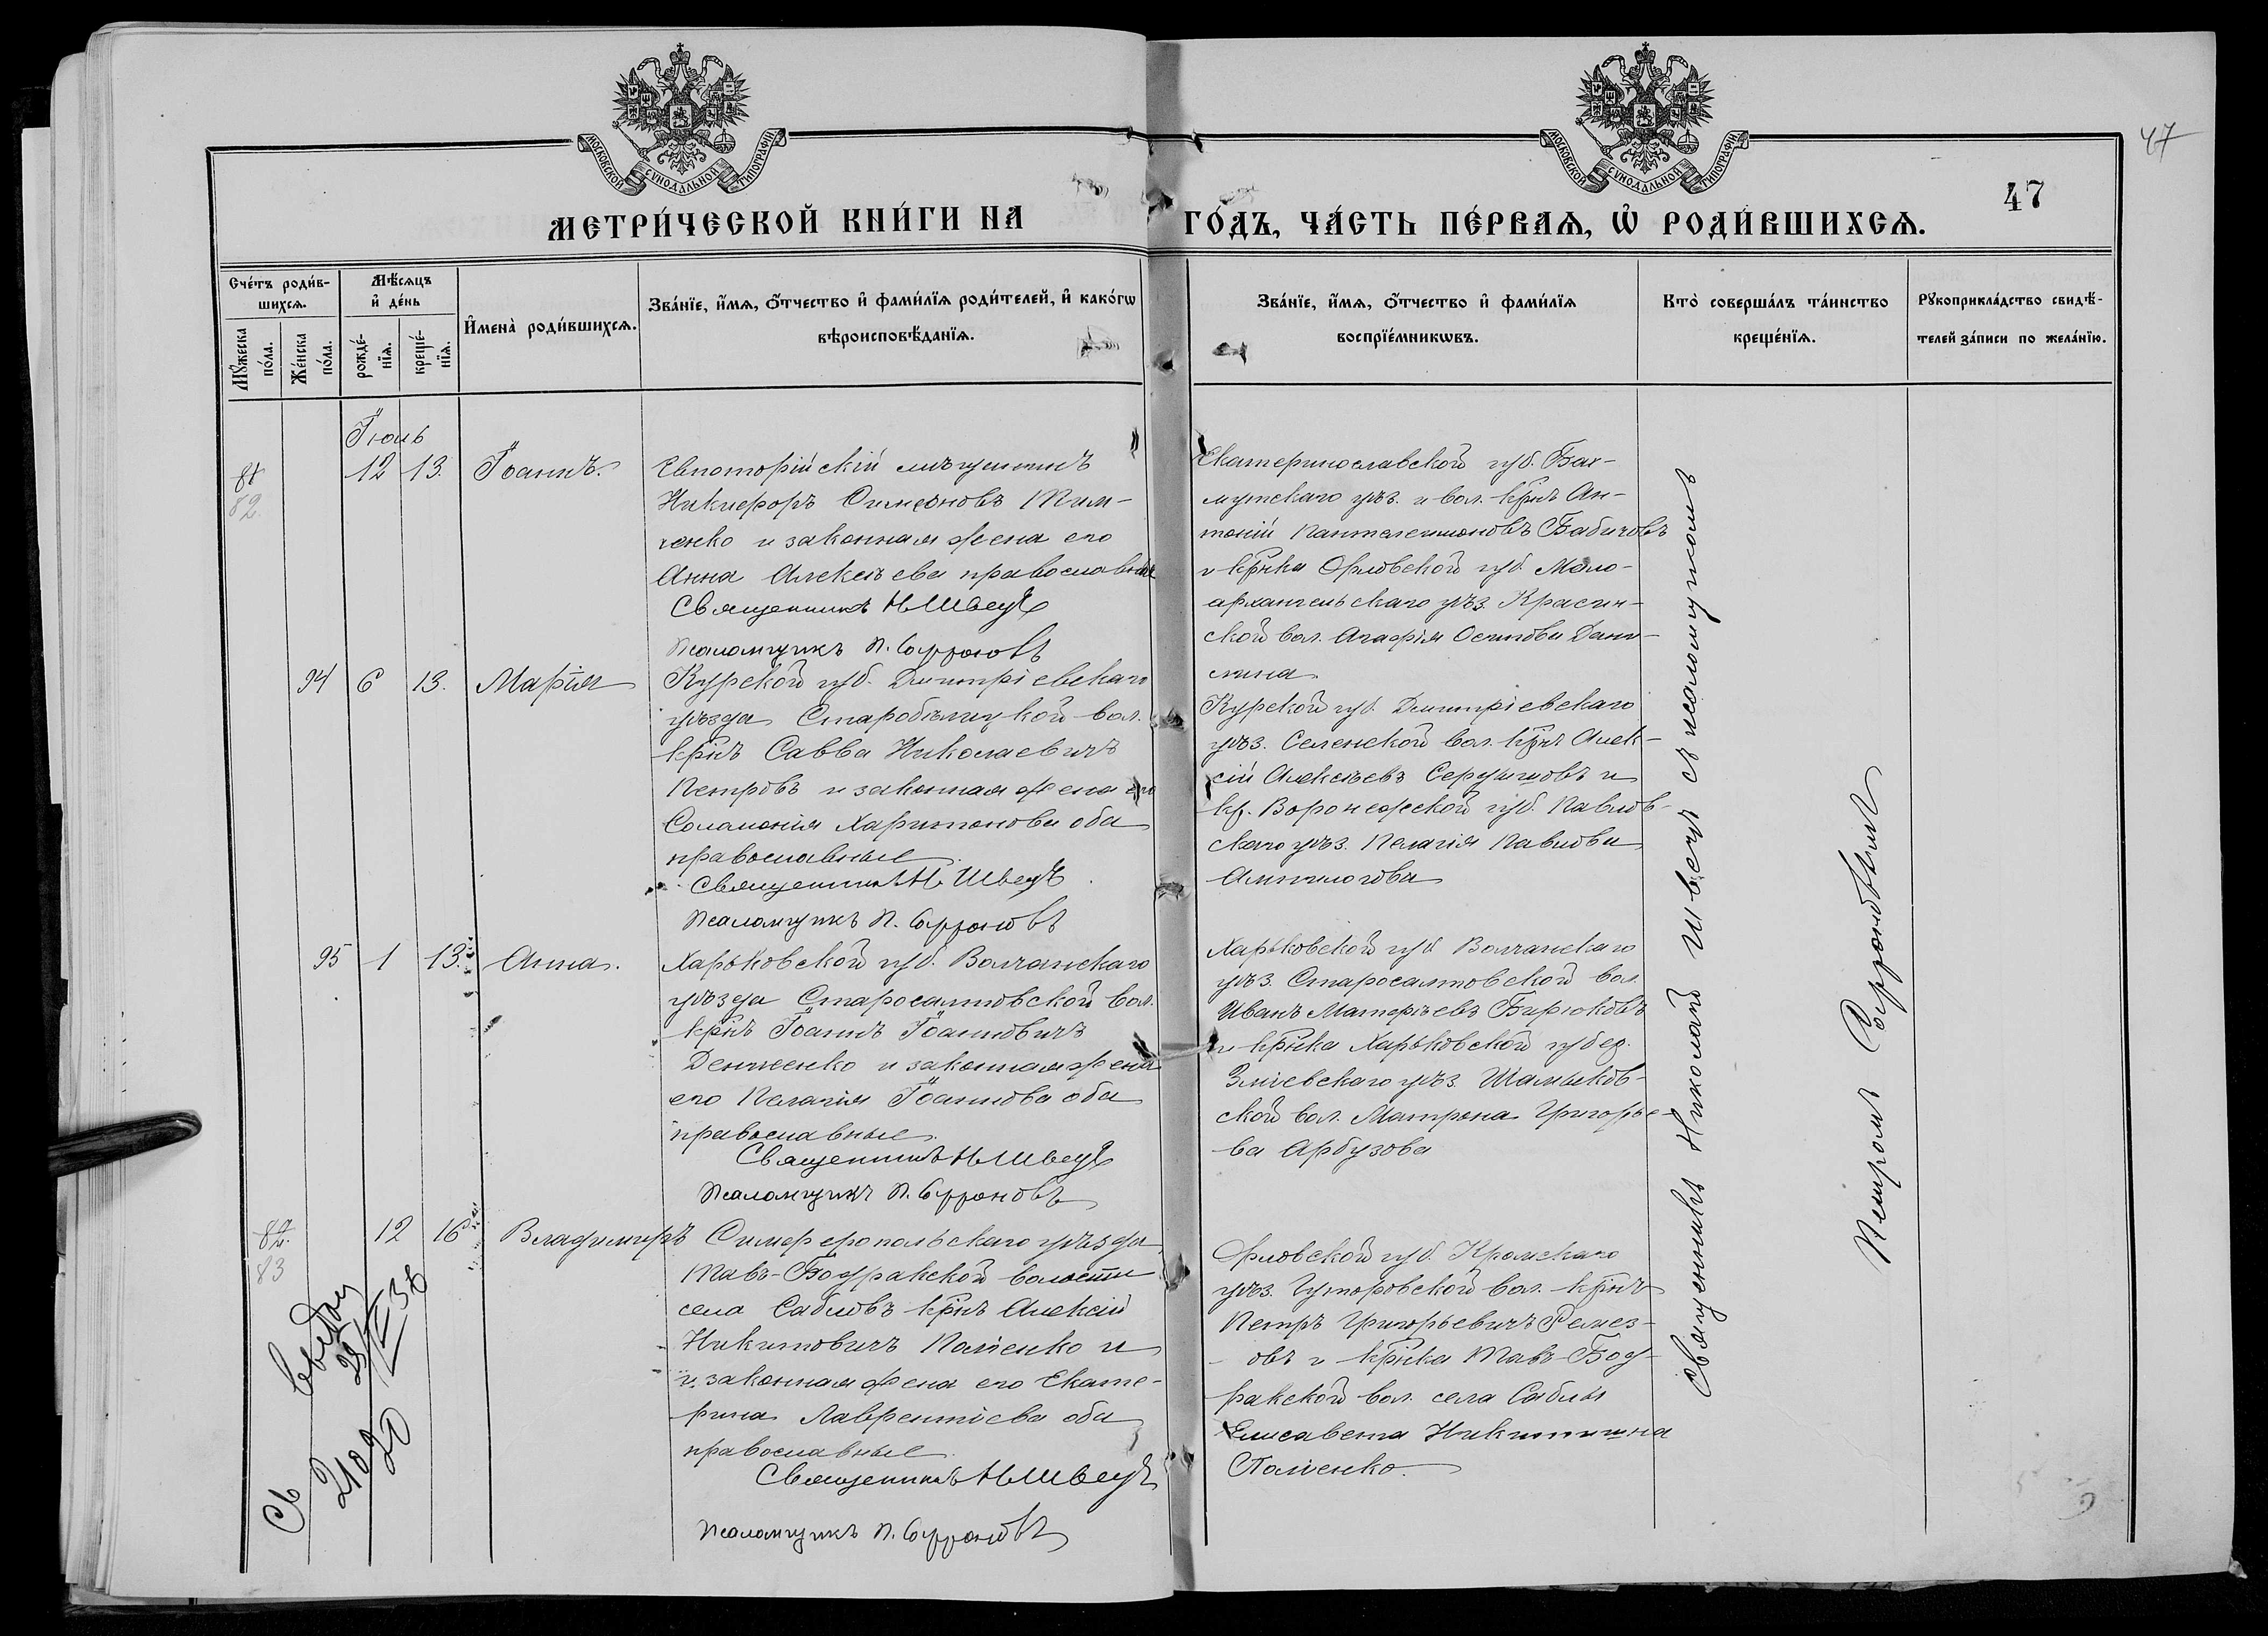 47
МОСКОВСКОЙ СѴНОДАЛЬНОЙ ТИПОГРАФІИ
МОСКОВСКОЙ СѴНОДАЛЬНОЙ ТИПОГРАФІИ
47
МЕТРИ́ЧЕСКОЙ КНИ́ГИ НА
ГО́ДЪ, ЧА́СТЬ ПЕ́РВАѦ, Ѡ҆ РОДИ́ВШИХСѦ.
Сче́тъ роди́в-
шихсѧ.
Мꙋ́жеска по́ла.
Же́нска по́ла.
Мѣ́сѧцъ
и҆ де́нь
рожде́-нїѧ.
креще́-нїѧ.
И҆мена̀ роди́вшихсѧ.
Зва́нїе, и҆́мѧ, ѻ҆́тчество и҆ фами́лїѧ роди́телей, и҆ како́гѡ
вѣроисповѣ́данїѧ.
Зва́нїе, и҆́мѧ, ѻ҆́тчество и҆ фами́лїѧ
воспрїе́мникѡвъ.
Кто̀ соверша́лъ та́инство
креще́нїѧ.
Рꙋкоприкла́дство свидѣ́-
телей за́писи по жела́нїю.
Іюль
81
82
12 13. Іоаннъ.
Евпаторійскій мѣщанинъ
Никифоръ Симеоновъ
ченко и законная жена его
Анна Алексѣева православные
Священникъ Н Швецъ
Псаломщикъ П. Софроновъ
Екатеринославской губ. Бах-
мутскаго уѣз. и вол. крнъ Ан-
тоній Пантелеимоновъ Бабичовъ
и крнка Орловской губ. Мало-
архангельскаго уѣз. Красин-
ской вол. Агафія Осипова Дани-
лина
94 6 13. Марія
Курской губ. Дмитріевскаго
уѣзда Старобѣлицкой вол.
крнъ Савва Николаевичъ
Петровъ и законная жена его
Соломонія Харитонова оба
православные.
Священникъ Н Швецъ
Псаломщикъ П. Софроновъ
Курской губ. Дмитріевскаго
уѣз. Селенской вол. крнъ Алек-
сій Алексѣевъ и
кр. Воронежской губ. Павлов-
скаго уѣз. Пелагія Павлова
95 1 13. Анна.
Харьковской губ. Волчанскаго
уѣзда Старосалтовской вол.
крнъ Іоаннъ Іоанновичъ
и законная жена
его Пелагія Іоаннова оба
православные.
Священникъ Н Швецъ
Псаломщикъ П. Софроновъ
Харьковской губ Волчанскаго
уѣз. Старосалтовской вол.
Иванъ Матѳѣевъ Бирюковъ
и крнка Харьковской губер.
Зміевскаго уѣз.
ской вол. Матрона Григорье-
ва Арбузова
82.
83
12 16 Владимиръ
Симферопольскаго уѣзда
Тавъ-Бодракской волости
села Сабловъ крнъ Алексій
Никитовичъ и
и законная жена его Екате-
рина Лаврентіева оба
православные.
Священникъ Н Швецъ
Псаломщикъ П. Софроновъ
Орловской губ. Кромскаго
уѣз. Гуторовской вол. крнъ
Петръ Григорьевичъ Ремез-
овъ и крнка Тавъ-Бод-
ракской вол. села Саблы
Елисавета Никитишна
Священникъ Николай Швецъ съ псаломщикомъ
Петромъ Софроновымъ